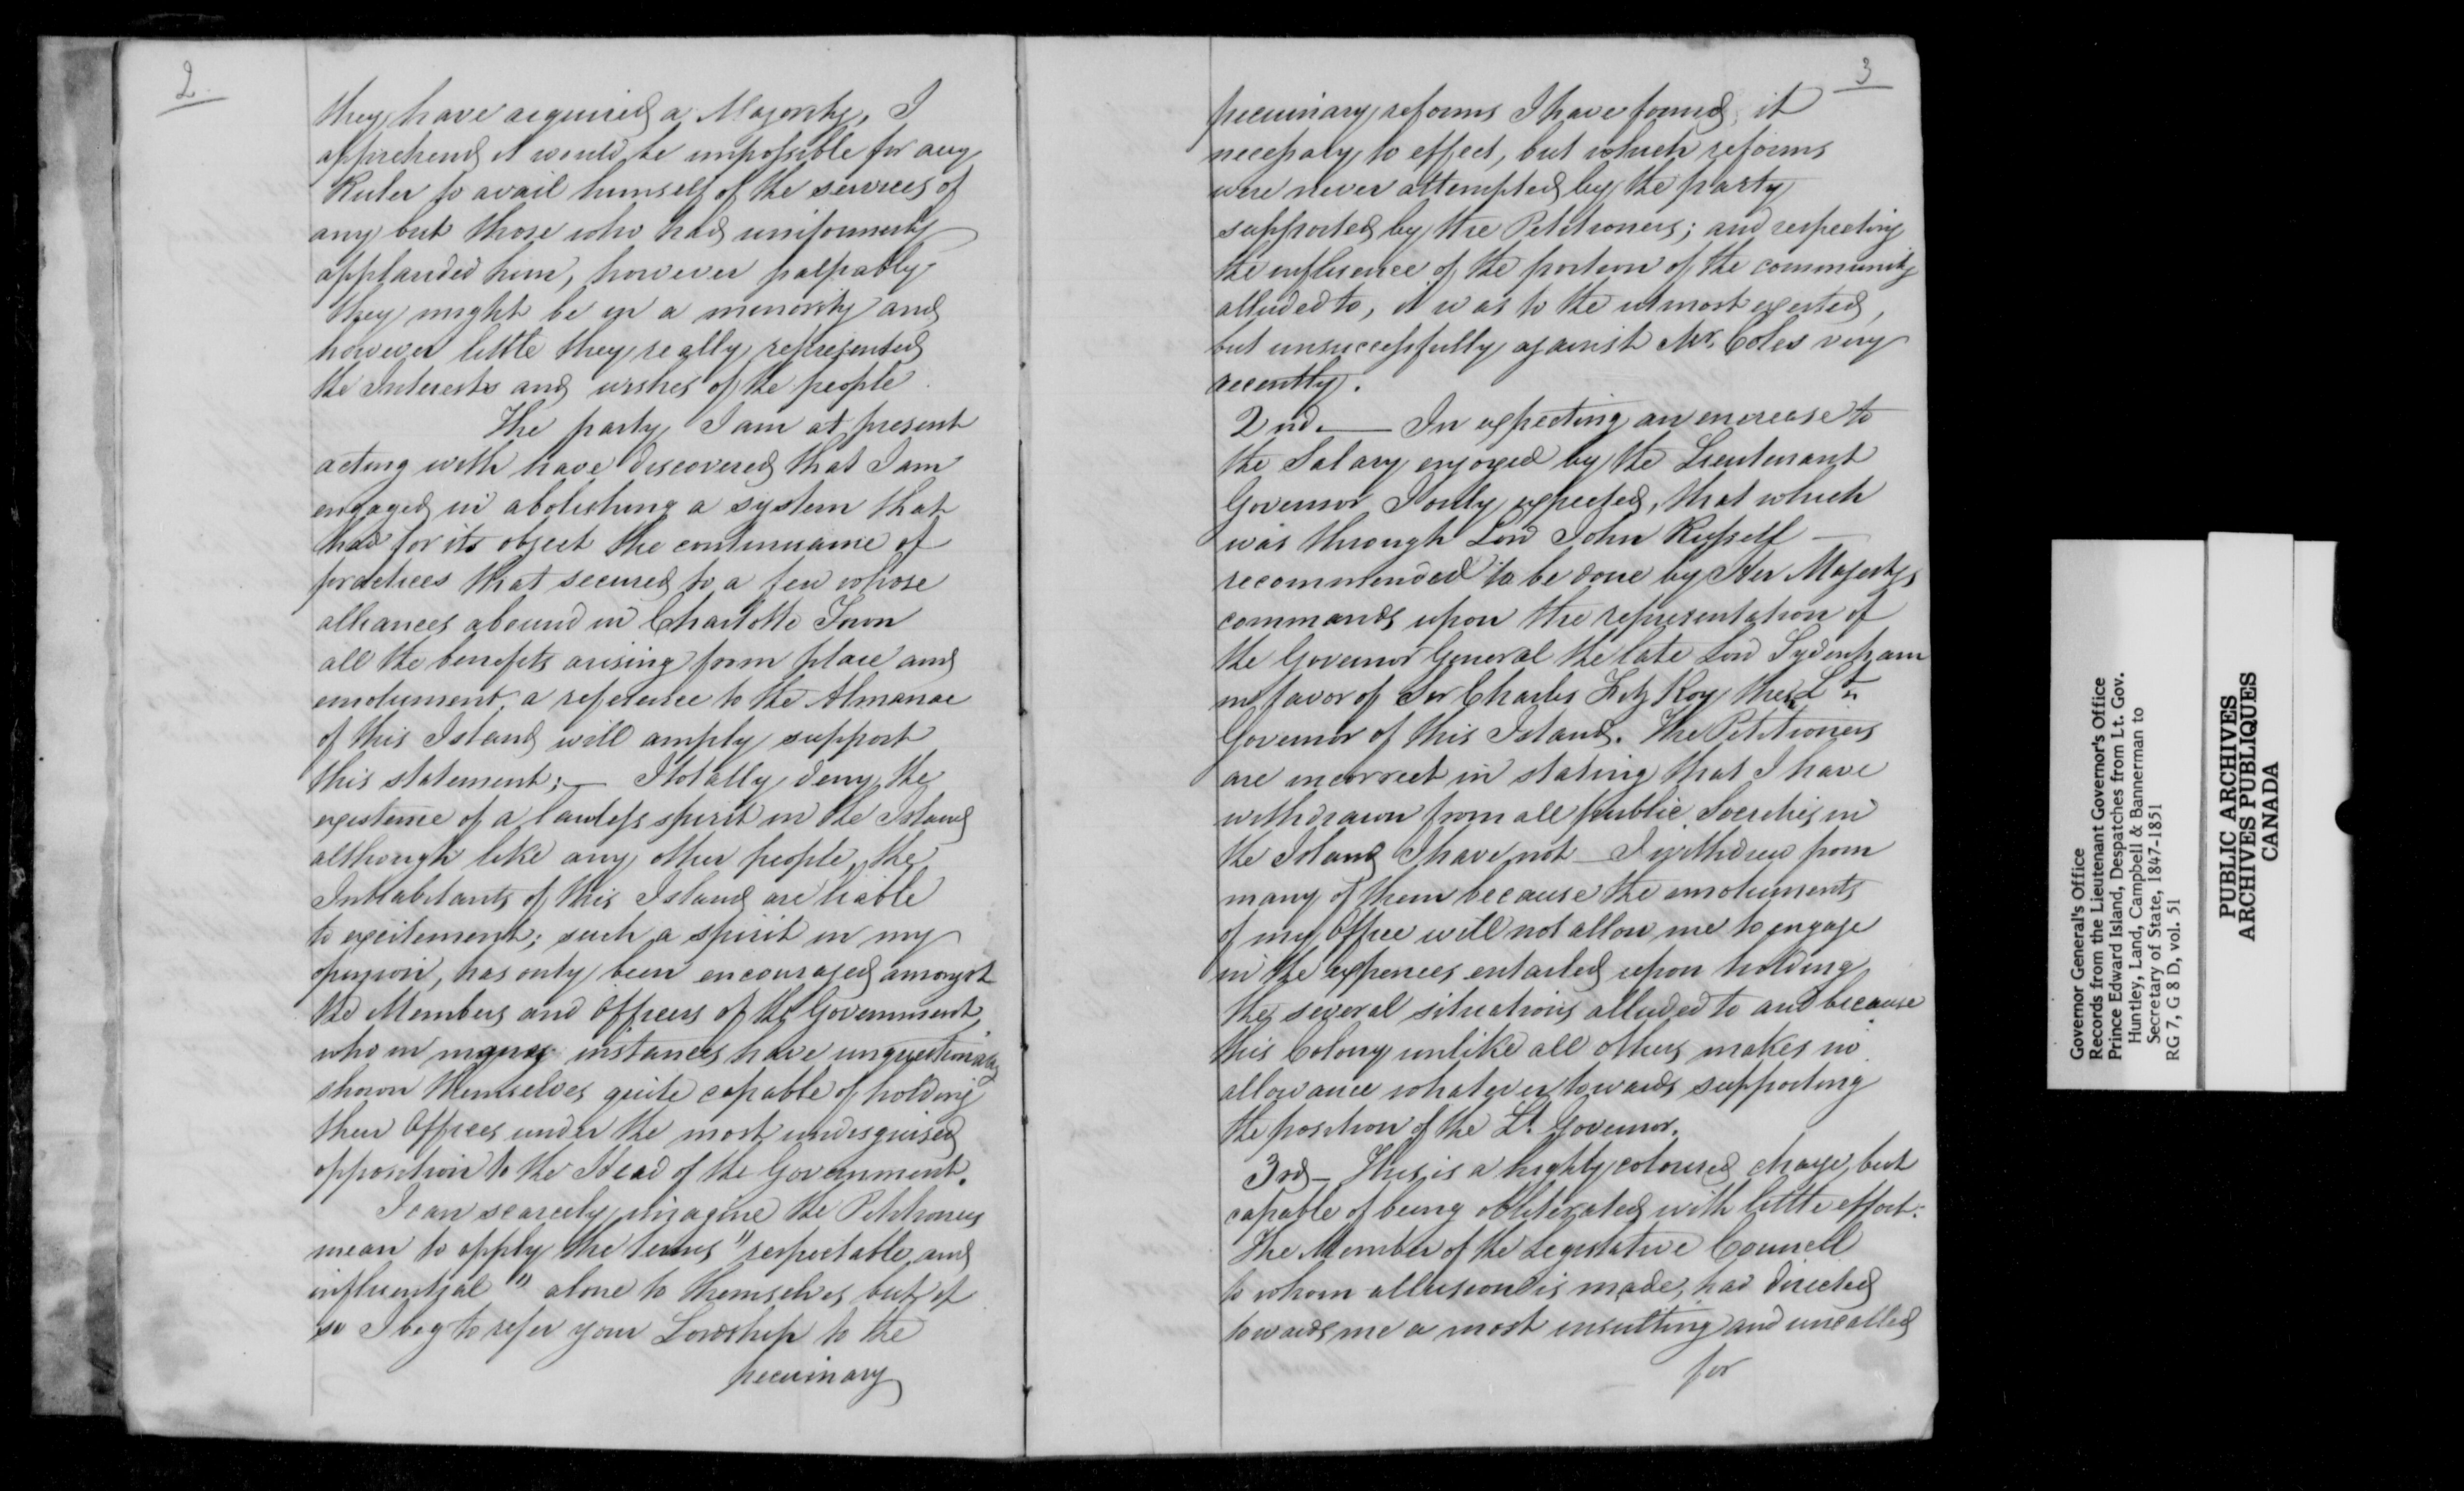 2
they have acquired a Majority, I
apprehend it would be impossible for any
Ruler to avail himself of the services of
any but those who had uniformerly
applauded him, however palpably
they might be in a minority and
however little they really represented
the Interests and wishes of the people.
The party I am at present
acting with have discovered that I am
engaged in abolishing a system that
had for its object the continuance of
practices that secured to a few whose
alliances abound in Charlotte Town
all the benefits arising from place and
emolument, a reference to the Almanac
of this Island will amply support
this statement;— I totally deny the
existence of a lawless spirit in the Island
although like any other people, the
Inhabitants of this Island are liable
to excitement; such a spirit in my
opinion, has only been encouraged amongst
the Members and Officers of the Government
who in many instances have unquestionably
shown themselves quite capable of holding
their Offices under the most undisguised
opposition to the Head of the Government.
I can scarcely imagine the Petitioners
mean to apply the terms "respectable and
influential" alone to themselves but if
so I beg to refer your Lordship to the
pecuinary
3
pecuinary reforms I have found it
necessary to effect, but which reforms
were never attempted by the party
supported by the Petitioners; and respecting
the influence of the portion of the community
alluded to, it was to the utmost exerted,
but unsuccessfully against Mr. Coles very
recently.
2nd.— In expecting an encrease to
the Salary enjoyed by the Lieutenant
Governor I only expected, that which
was through Lord John Russell —
recommended to be done by Her Majestys
commands upon the representation of
the Governor General the late Lord Sydenham
in favor of Sir Charles Fitz Roy then Lt.
Governor of this Island. The Petitioners
are incorrect in stating that I have
withdrawn from all public Societies in
the Island I have not — I withdrew from
many of them because the emoluments
of my Office will not allow me to engage
in the expences entailed upon holding
the several situations alluded to and because
this Colony unlike all others makes no
allowance whatever towards supporting
the position of the Lt. Governor.
3rd— This is a highly coloured charge, but
capable of being obliterated with little effort.
The Member of the Legislative Council
to whom allusion is made, had directed
towards me a most insulting and uncalled
for
Governor General's Office
Records from the Lieutenant Governor's Office
Prince Edward Island, Despatches from Lt. Gov.
Huntley, Land, Campbell & Bannerman to
Secretary of State, 1847-1851
RG 7, G 8 D, vol. 51
PUBLIC ARCHIVES
ARCHIVES PUBLIQUES
CANADA